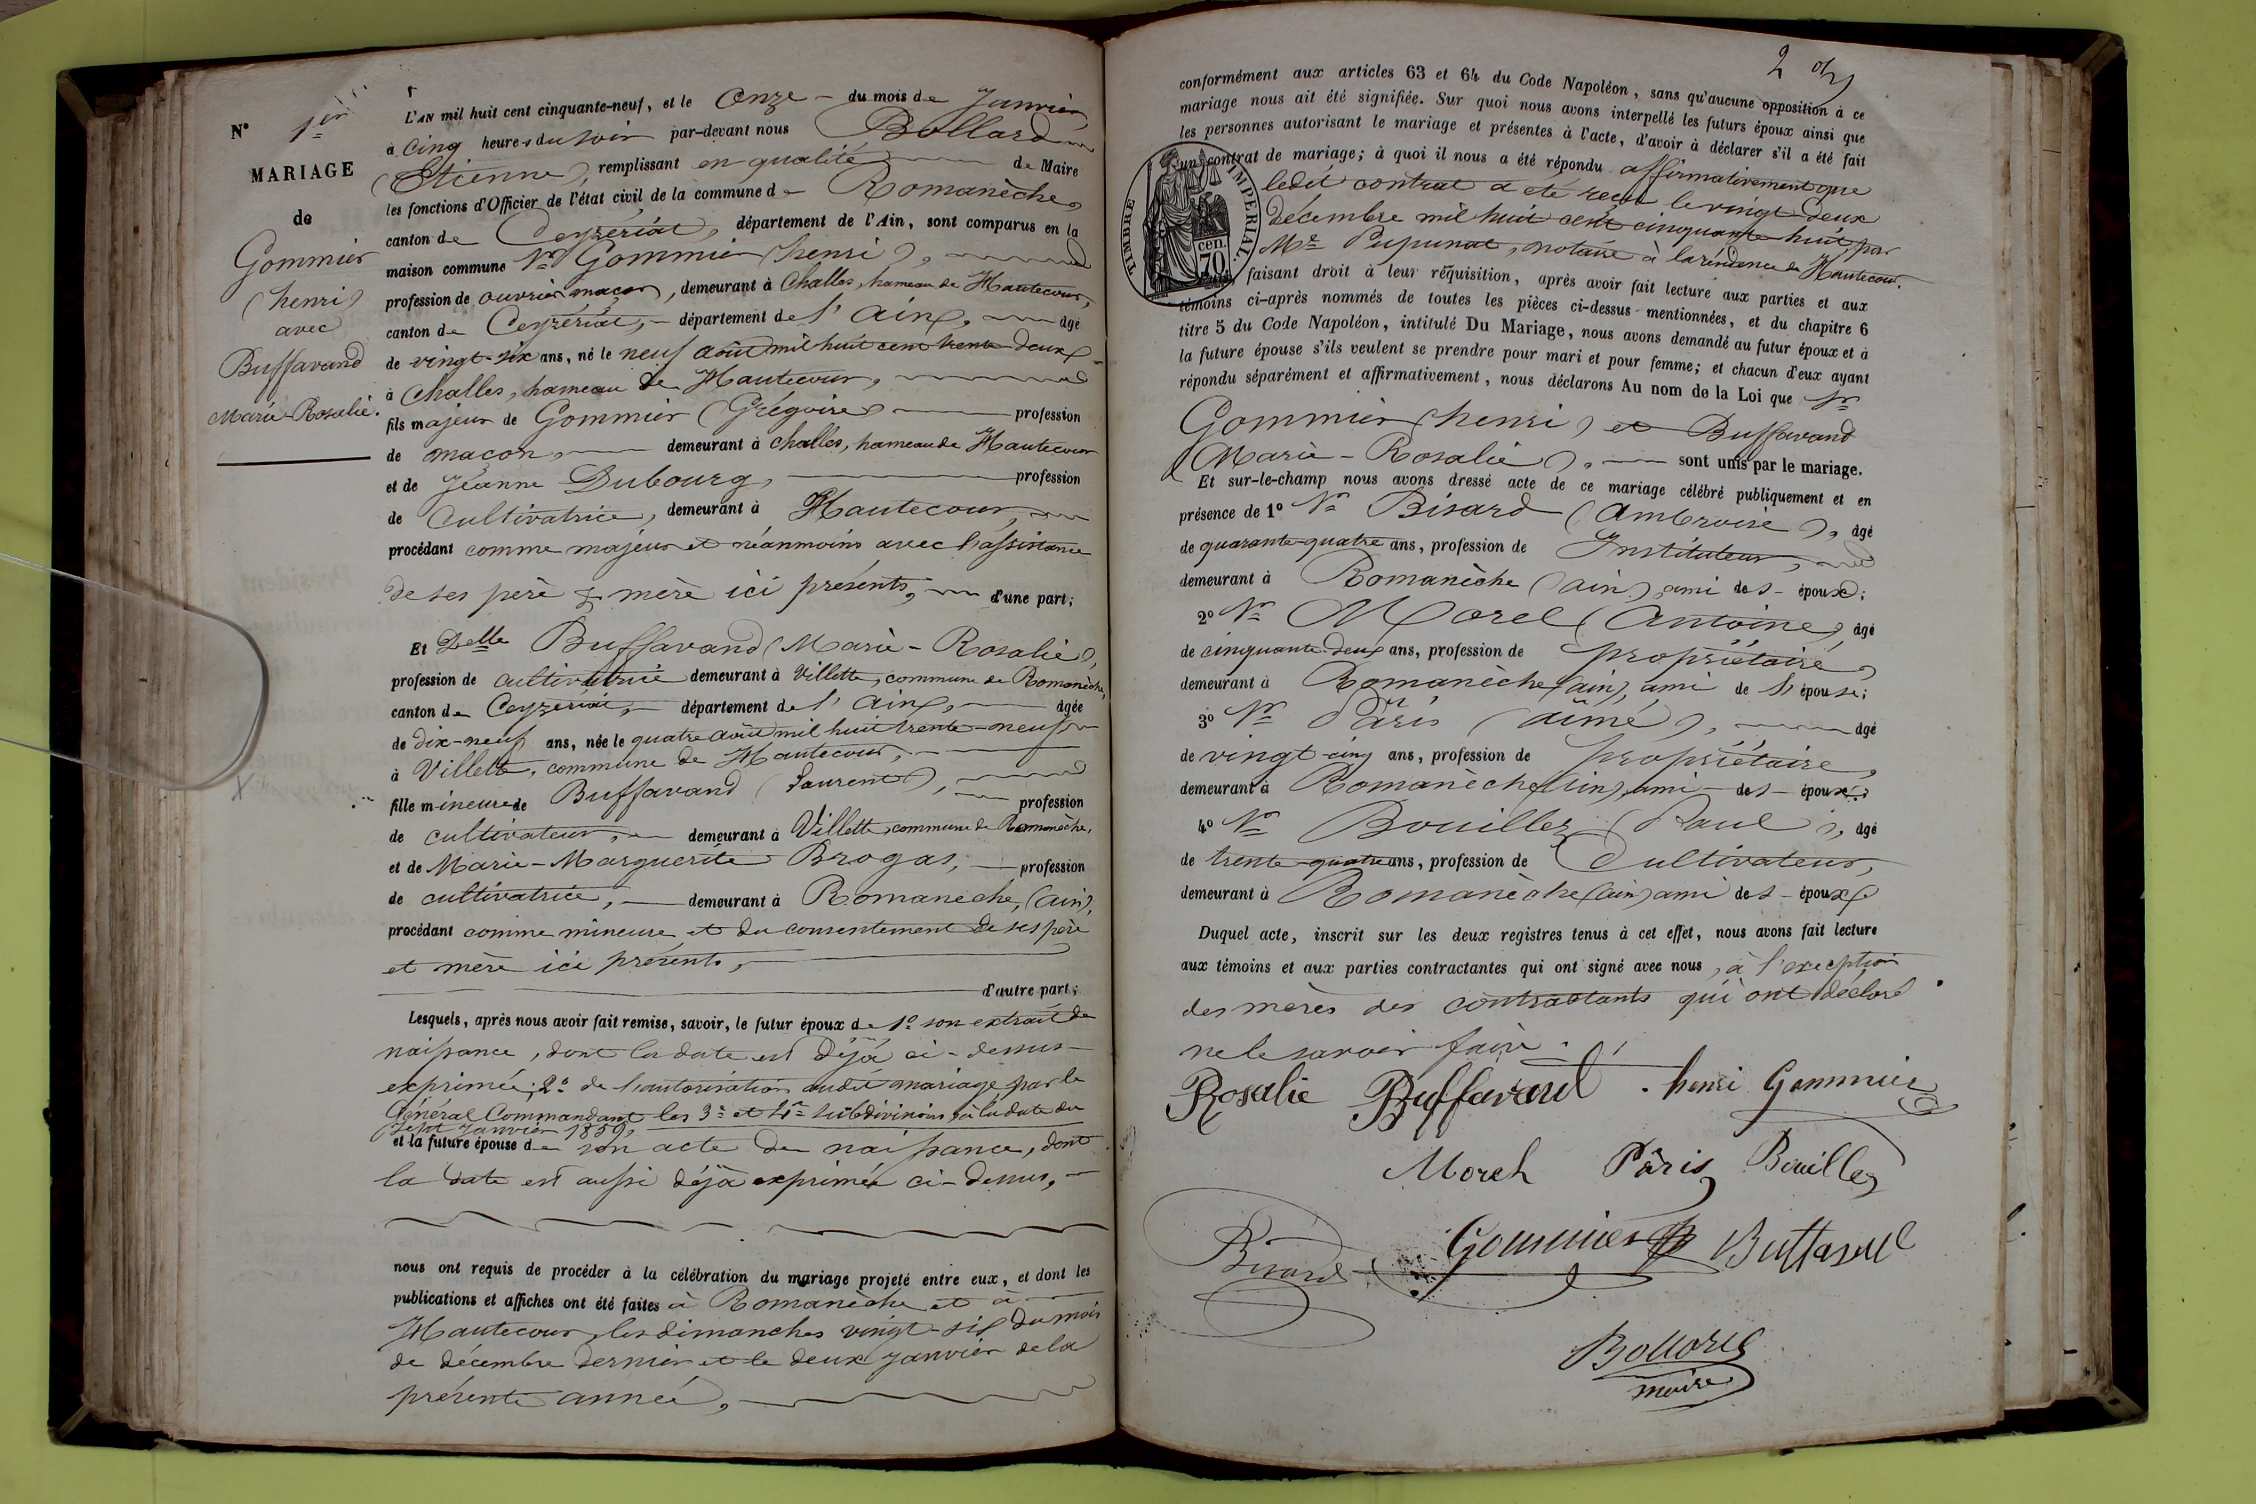 N° 1er
MARIAGE
de
Gommier
(henri)
avec
Buffavand
Marie-Rosalie.
L'AN mil huit cent cinquante-neuf, et le Onze du mois de Janvier,
à cinq heures du soir par-devant nous Bollard
(Etienne) remplissant en qualité de Maire
les fonctions d'Officier de l'état civil de la commune de Romanèche,
canton de Ceyzériat, département de l'Ain, sont comparus en la
maison commune Sr Gommier (henri),
profession de ouvrier maçon, demeurant à Challes, hameau de Hautecour,
canton de Ceyzériat, département de l'Ain, âgé
de vingt-six ans, né le neuf août mil huit cent trente deux
à Challes, hameau de Hautecour,
fils majeur de Gommier (Grégoire) profession
de maçon, demeurant à challes, hameau de Hautecour
et de Jeanne Dubourg, profession
de Cultivatrice, demeurant à Hautecour,
procédant comme majeur et néanmoins avec l'assistance
de ses père & mère ici présents, d'une part;
Et Delle Buffavand (Marie-Rosalie),
profession de cultivatrice demeurant à Villette, commune de Romanèche,
canton de Ceyzériat, département de l'Ain, âgée
de dix-neuf ans, née le quatre août mil huit trente-neuf
à Villette, commune de Hautecour,
fille mineure de Buffavand (Laurent), profession
de cultivateur, demeurant à Villette, commune de Romanèche,
et de Marie-Marguerite Brogas, profession
de cultivatrice, demeurant à Romanèche, (ain),
procédant comme mineure et du consentement de ses père
et mère ici présents,
d'autre part;
Lesquels, après nous avoir fait remise, savoir, le futur époux de 1° son extrait de
naissance, dont la date est déjà ci-dessus
exprimée; 2° de l'autorisation audit mariage par le
Général Commandant les 3e et 4e subdivisions, à la date du
sept Janvier 1859,
et la future épouse de son acte de naissance, dont
la date est aussi déjà exprimée ci-dessus,
nous ont requis de procéder à la célébration du mariage projeté entre eux, et dont les
publications et affiches ont été faites à Romanèche et à
Hautecour, les dimanches vingt-six du mois
de décembre dernier et le deux Janvier de la
présente année,
2
conformément aux articles 63 et 64 du Code Napoléon, sans qu'aucune opposition à ce
mariage nous ait été signifiée. Sur quoi nous avons interpellé les futurs époux ainsi que
les personnes autorisant le mariage et présentes à l'acte, d'avoir à déclarer s'il a été fait
un contrat de mariage; à quoi il nous a été répondu affirmativement que
ledit contrat a été reçu le vingt-deux
décembre mil huit cent cinquante-huit, par
Me Pupunat, notaire à la résidence de Hautecour.
TIMBRE IMPERIAL.
70 cen.
faisant droit à leur réquisition, après avoir fait lecture aux parties et aux
témoins ci-après nommés de toutes les pièces ci-dessus mentionnées, et du chapitre 6
titre 5 du Code Napoléon, intitulé Du Mariage, nous avons demandé au futur époux et à
la future épouse s'ils veulent se prendre pour mari et pour femme; et chacun d'eux ayant
répondu séparément et affirmativement, nous déclarons Au nom de la Loi que Sr
Gommier (henri) et Buffavand
(Marie-Rosalie), sont unis par le mariage.
Et sur-le-champ nous avons dressé acte de ce mariage célébré publiquement et en
présence de 1° Sr Bisard (Ambroise), âgé
de quarante-quatre ans, profession de Instituteur,
demeurant à Romanèche (ain), ami des époux;
2° Sr Morel (Antoine), âgé
de cinquante deux ans, profession de propriétaire,
demeurant à Romanèche (ain), ami de l'épouse;
3° Sr Pâris (aimé), âgé
de vingt-cinq ans, profession de propriétaire,
demeurant à Romanèche (ain), ami des époux;
4° Sr Bouillez (Paul), âgé
de trente-quatre ans, profession de Cultivateur,
demeurant à Romanèche (ain) ami des époux,
Duquel acte, inscrit sur les deux registres tenus à cet effet, nous avons fait lecture
aux témoins et aux parties contractantes qui ont signé avec nous, à l'exception
des mères des contractants qui ont déclaré
ne le savoir faire.
Rosalie Buffavand henri Gommier
Morel Pâris Bouillez
Bisard Gommier Buffavand
Bollard
maire